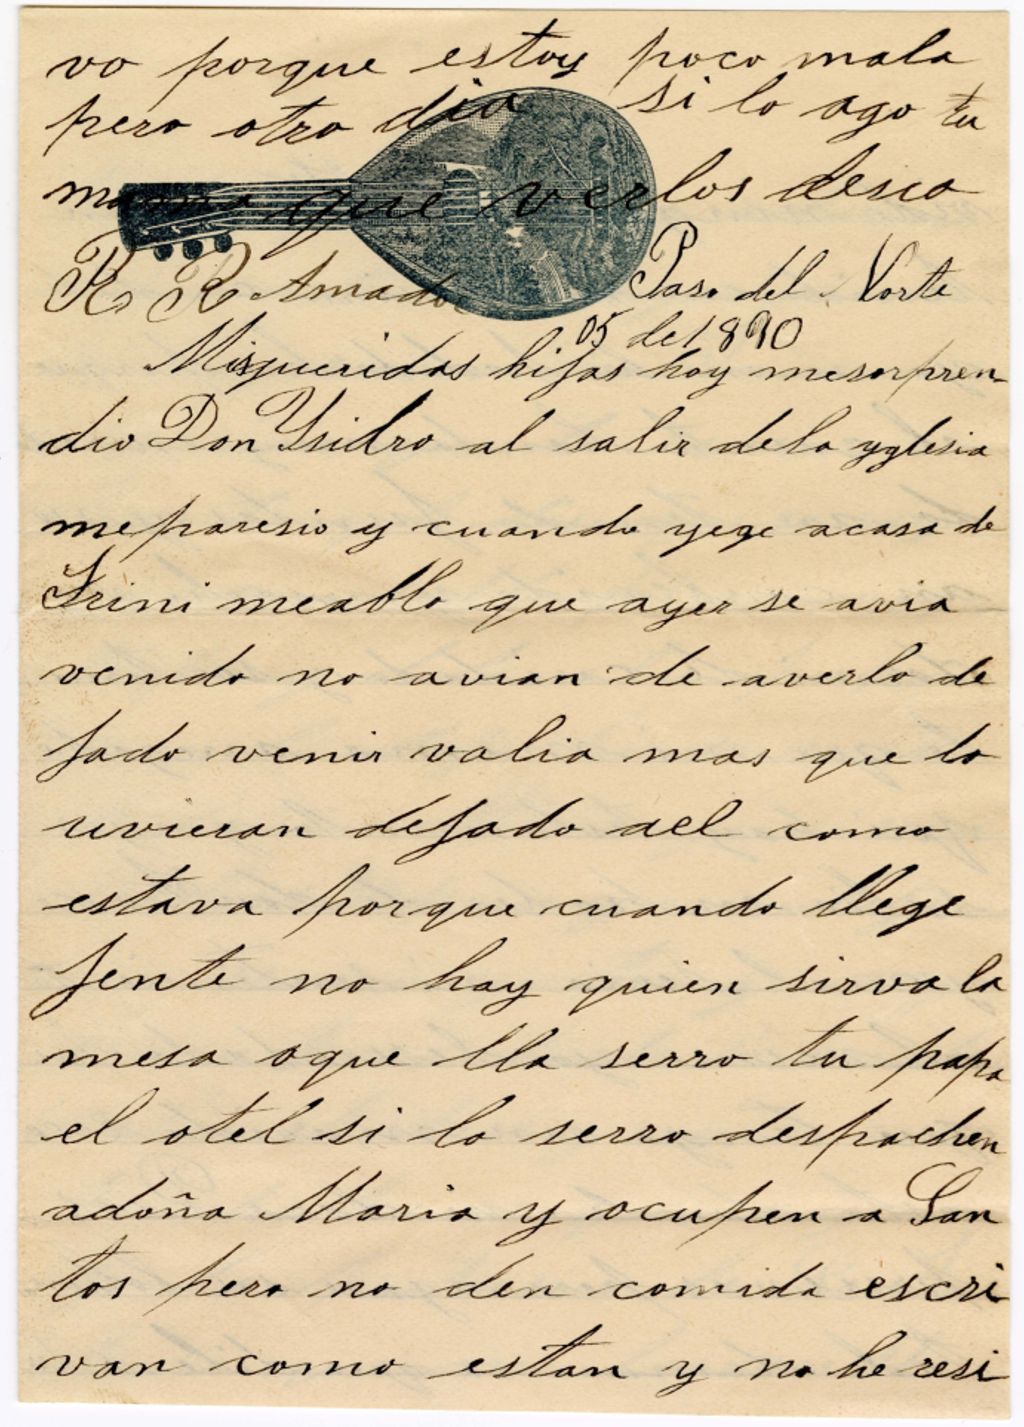 vo porque estoy poco mala
pero otro dia si lo ago tu
mama que verlos desea
R R Amado Paso del Norte
05 de 1890
Mis queridas hijas hoy mesorpren-
dio Don Ysidro al salir dela yglesia
meparesio y cuando yege acasa de
Trini meablo que ayer se avia
venido no avian de averlo de
jado venir valia mas que lo
uvieran dejado ael como
estava porque cuando llege
jente no hay quien sirva la
mesa oque lla serro tu papa
el otel si lo serro despachen
adoña Maria y ocupen a San
tos pero no den comida escri
van como estan y no he resi